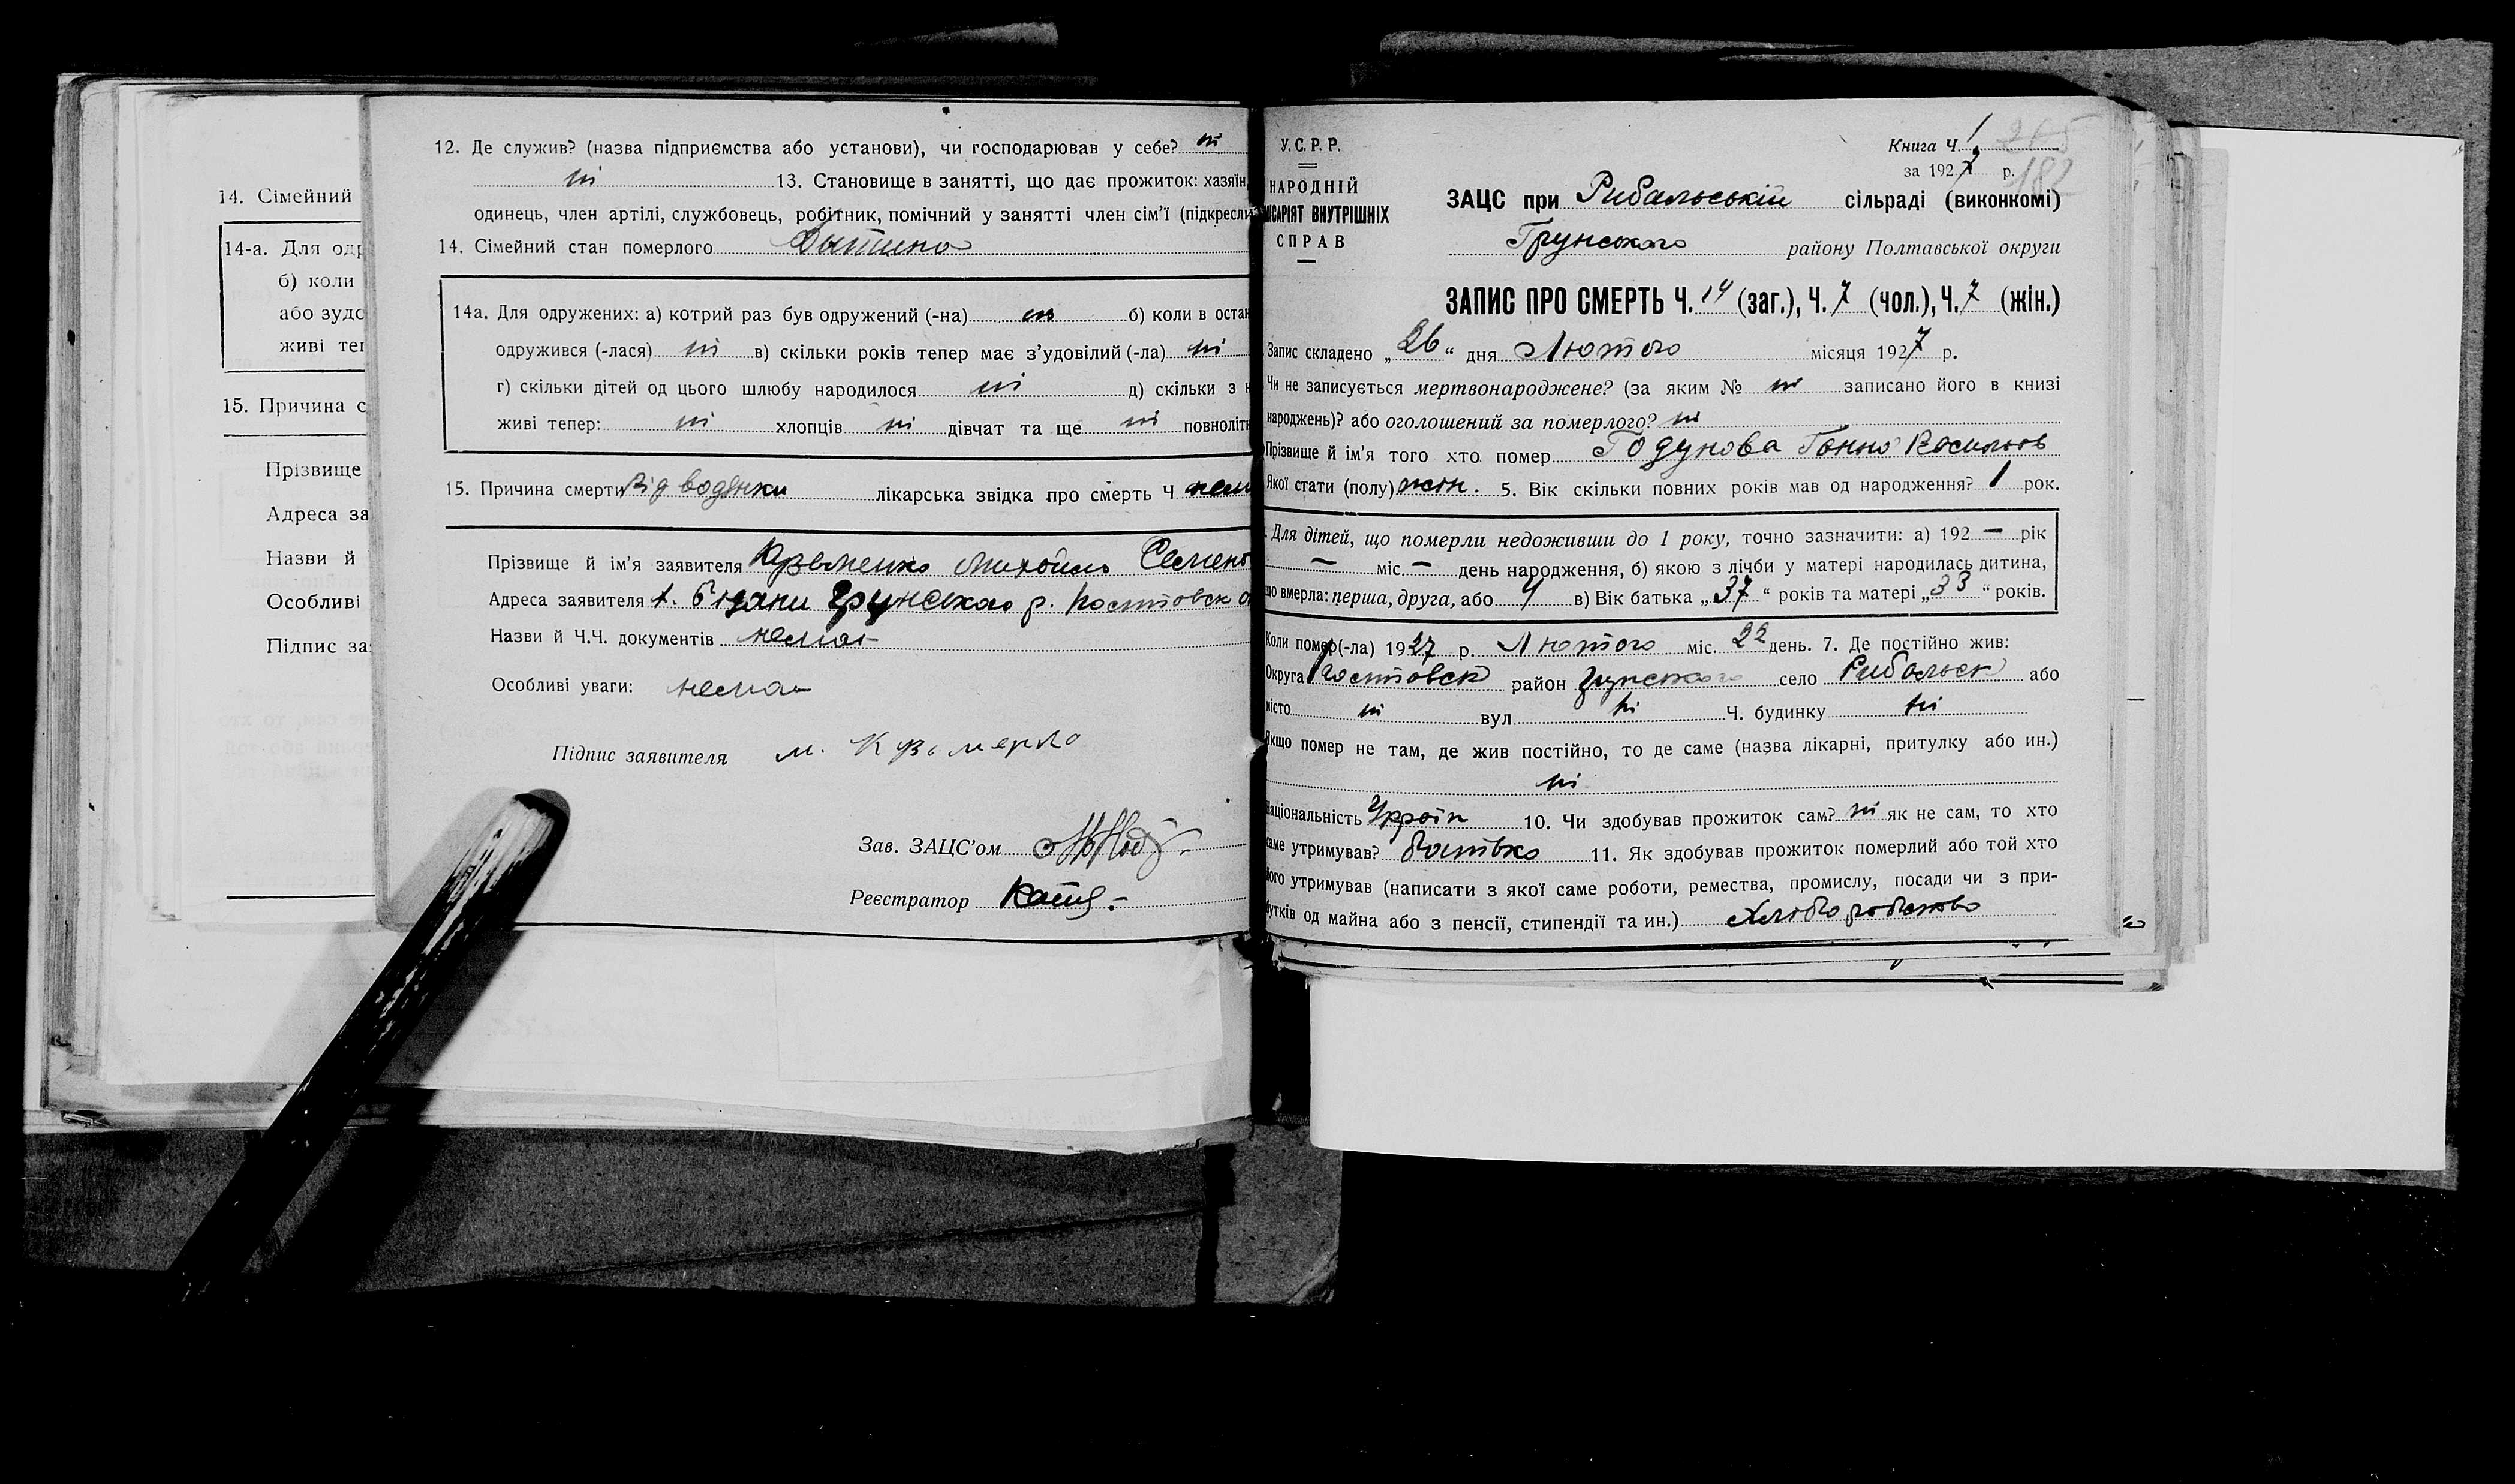 14. Сімейний
14-а. Для одр
б) коли
або зудо
живі теп
15. Причина с
Прізвище
Адреса за
Назви й
Особливі
Підпис за
12. Де служив? (назва підприємства або установи), чи господарював у себе? ні
ні 13. Становище в занятті, що дає прожиток: хазяїн,
одинець, член артілі, службовець, робітник, помічний у занятті член сім'ї (підкресли
14. Сімейний стан померлого Дитина
14а. Для одружених: а) котрий раз був одружений (-на) ні б) коли в остан
одружився (-лася) ні в) скільки років тепер має з'удовілий (-ла) ні
г) скільки дітей од цього шлюбу народилося ні д) скільки з н
живі тепер: ні хлопців ні дівчат та ще ні повноліт
15. Причина смерти Від водянки лікарська звідка про смерть Ч нема
Прізвище й ім'я заявителя Кузьменко Михайло Семено
Адреса заявителя Грунського р. Полтавськ
Назви й Ч.Ч. документів немає
Особливі уваги: немає
Підпис заявителя М. Кузьменко
Зав. ЗАЦС'ом
Реєстратор
У.С.Р.Р.
НАРОДНІЙ
ІСАРІЯТ ВНУТРІШНІХ
СПРАВ
Книга Ч. 1 265
за 1927 р. 182
ЗАЦС при Рибальській сільраді (виконкомі)
Грунського району Полтавської округи
ЗАПИС ПРО СМЕРТЬ Ч. 14 (заг.), Ч. 7 (чол.), Ч. 7 (жін.)
Запис складено „26“ дня Лютого місяця 1927 р.
Чи не записується мертвонароджене? (за яким № ні записано його в книзі
народжень)? або оголошений за померлого? ні
Прізвище й ім'я того хто помер Годунова Ганна Васильов
Якої стати (полу) жін. 5. Вік скільки повних років мав од народження? 1 рок.
Для дітей, що померли недоживши до 1 року, точно зазначити: а) 192 — рік
— міс. — день народження, б) якою з лічби у матері народилась дитина,
що вмерла: перша, друга, або 4 в) Вік батька „37“ років та матері „33“ років.
Коли помер(-ла) 1927 р. Лютого міс. 22 день. 7. Де постійно жив:
Округа Полтавськ район Грунського село Рибальськ або
місто ні вул ні Ч. будинку ні
Якщо помер не там, де жив постійно, то де саме (назва лікарні, притулку або ин.)
ні
Національність Україн 10. Чи здобував прожиток сам? ні як не сам, то хто
саме утримував? батько 11. Як здобував прожиток померлий або той хто
його утримував (написати з якої саме роботи, ремества, промислу, посади чи з при-
бутків од майна або з пенсії, стипендії та ин.) Хлібо робство